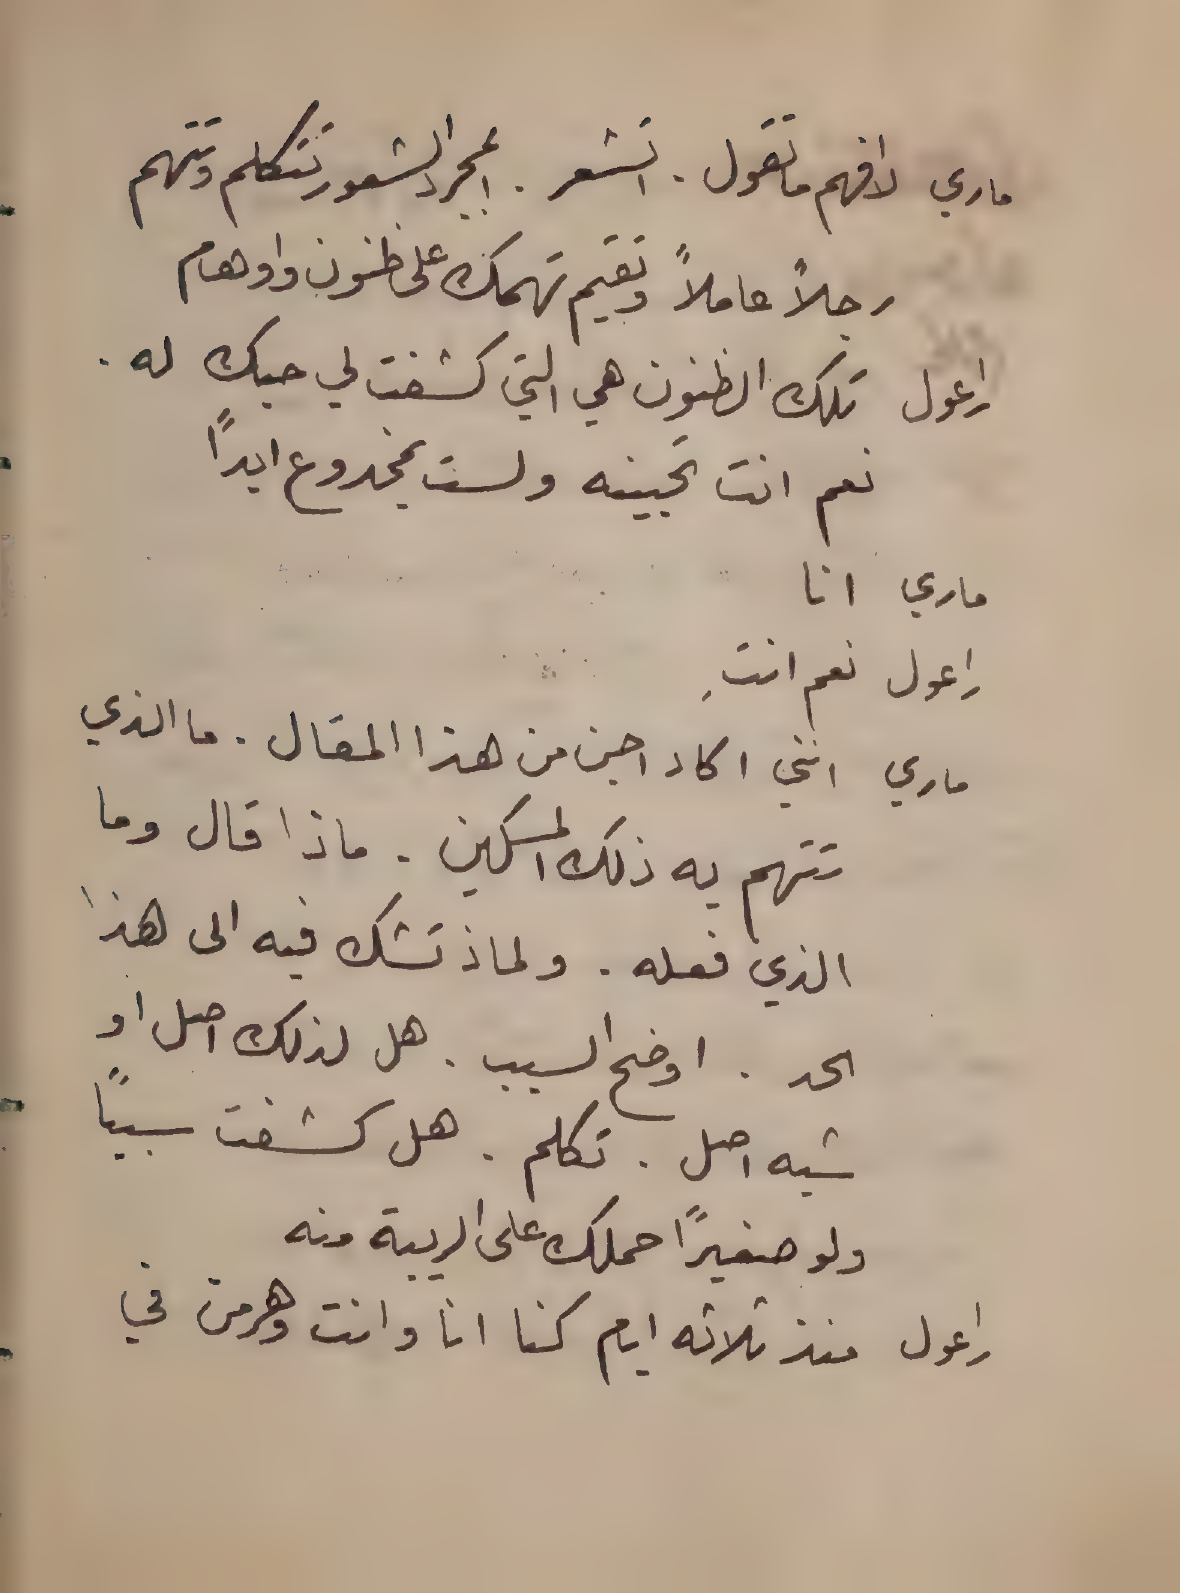 ماري لافهم ما تقول . اتشعر . المجرد الشعور تتكلم وتتهم
رجلاً عاملاً وتقيم تهمك على ظنون واوهام
راعول تلك الظنون هي التي كشفت لي حبك له .
نعم انت تحبينه ولست بمخدوع ابداً
ماري انا
راعول نعم انتِ
ماري انني اكاد اجن من هذا المقال . ما الذي
تتهم به ذلك المسكين . ماذا قال وما
الذي فعله . ولماذ تشك فيه الى هذا
الحد . اوضح السبب . هل لذلك اصل او
شبه اصل . تكلم . هل كشفت سبباً
ولو صغيراً حملك على الريبة منه
راعول منذ ثلاثه ايام كنا انا وانت وهرمن في